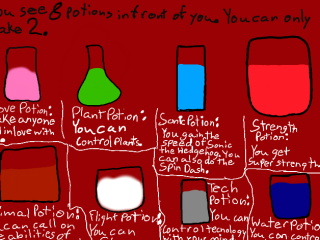 ou see 8 Potions in front of you. You can only
ake 2.
ove Potion:
ake anyone
l in love with
Plant Potion:
You can
Control Plants.
Sonic Potion:
You gain the
speed of Sonic
the Hedgehog. You
can also do the
Spin Dash.
Strength
Potion:
You get
Super strength
imal Potion:
u can call on
e abilities of
Flight Potion:
You can
Tech
Potion:
You can
Control technology
with your mind
Water Potion:
You can control